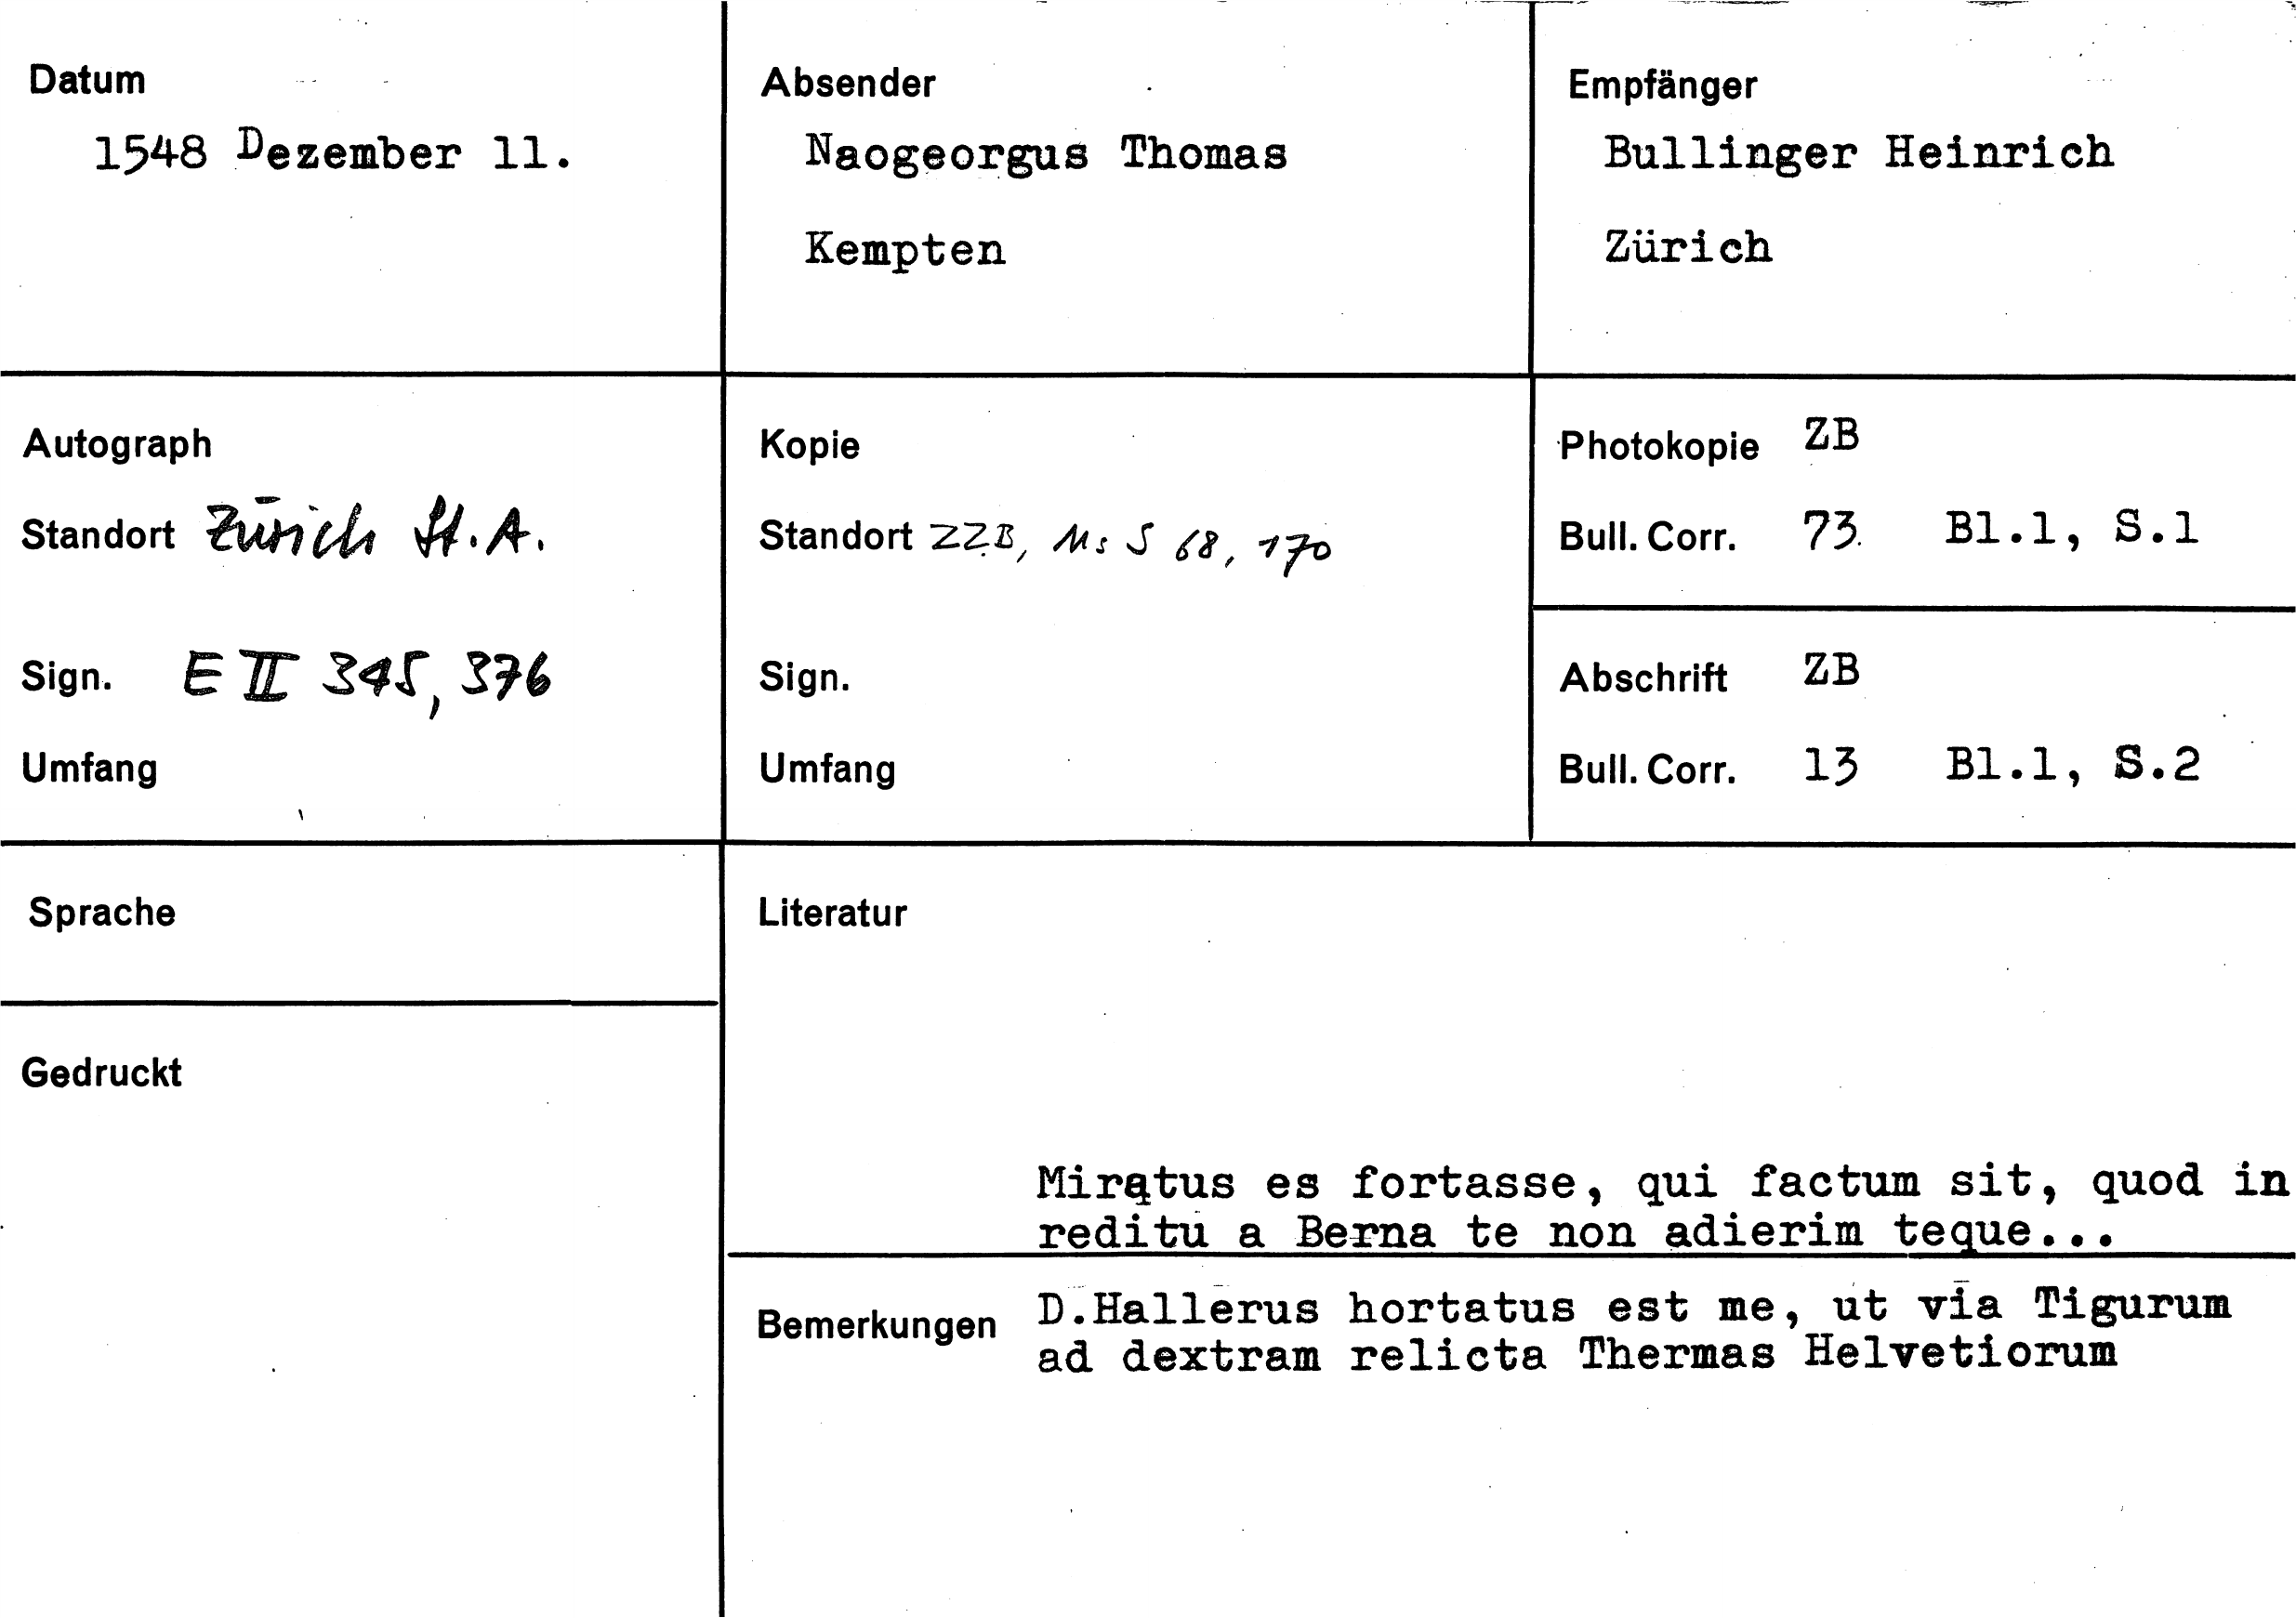 Datum
1548 Dezember 11.
Absender
Naogeorgus Thomas
Kempten
Empfänger
Bullinger Heinrich
Zürich
Autograph
Standort Zürich St.A.
Sign. E II 345, 376
Umfang
Kopie
Standort ZZB, Ms S 68, 170
Sign.
Umfang
Photokopie ZB
Bull. Corr. 73 Bl.1, S.1
Abschrift ZB
Bull. Corr. 13 Bl.1, S.2
Sprache
Gedruckt
Literatur
Miratus es fortasse, qui factum sit, quod in
reditu a Berna te non adierim teque...
Bemerkungen D.Hallerus hortatus est me, ut via Tigurum
ad dextram relicta Thermas Helvetiorum